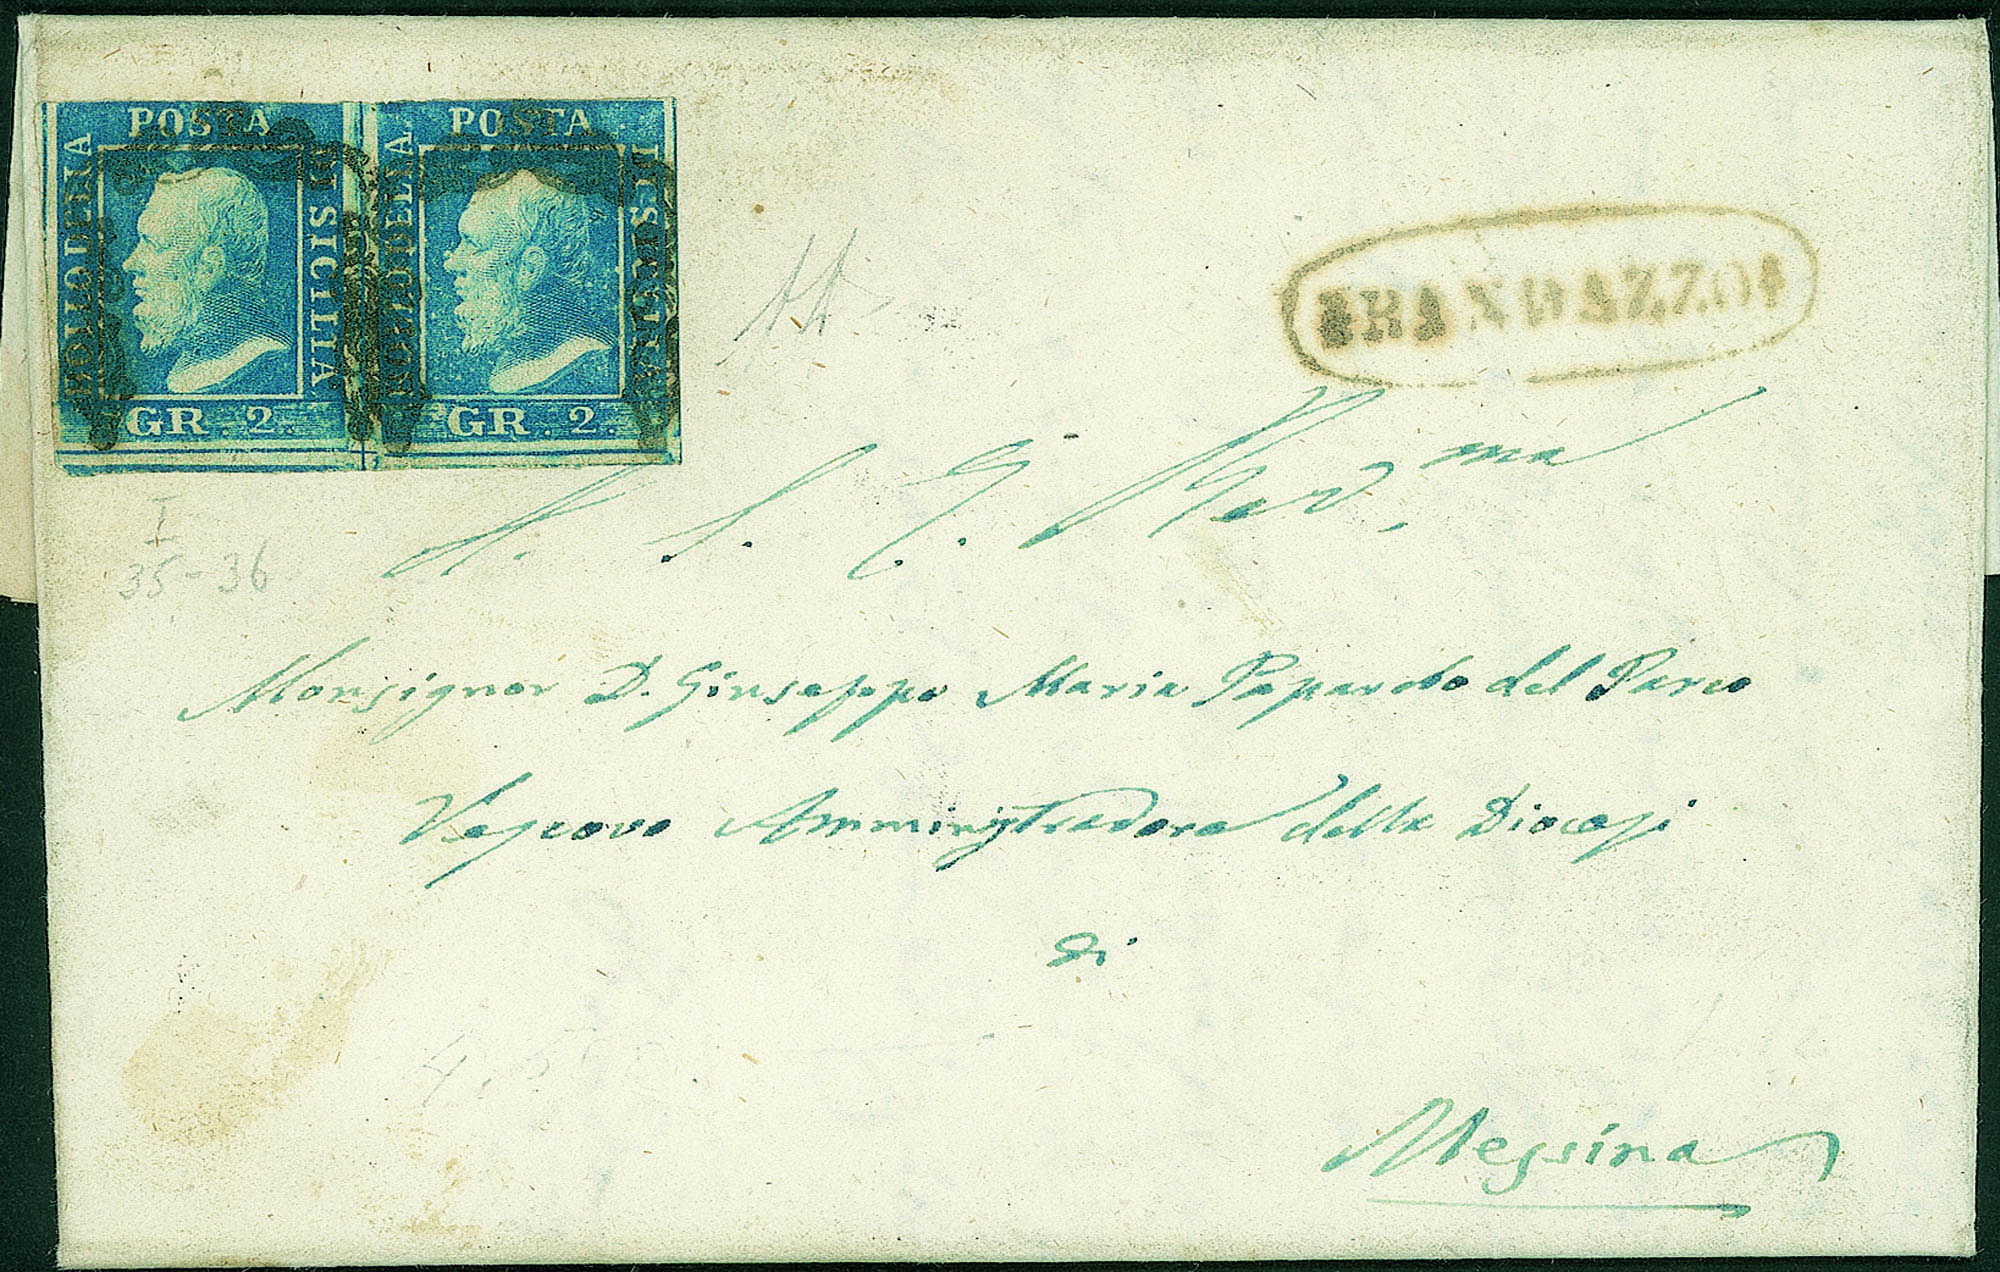 POSTA POSTA
BOLLO DELLA DI SICILIA BOLLO DELLA DI SICILIA
GR. 2. GR. 2.
RANDAZZO
A. S. E. Rev.ma
I
35-36
Monsignor D. Giuseppe Maria Papardo del Parco
Vescovo Amministradore della Diocesi
di
Messina